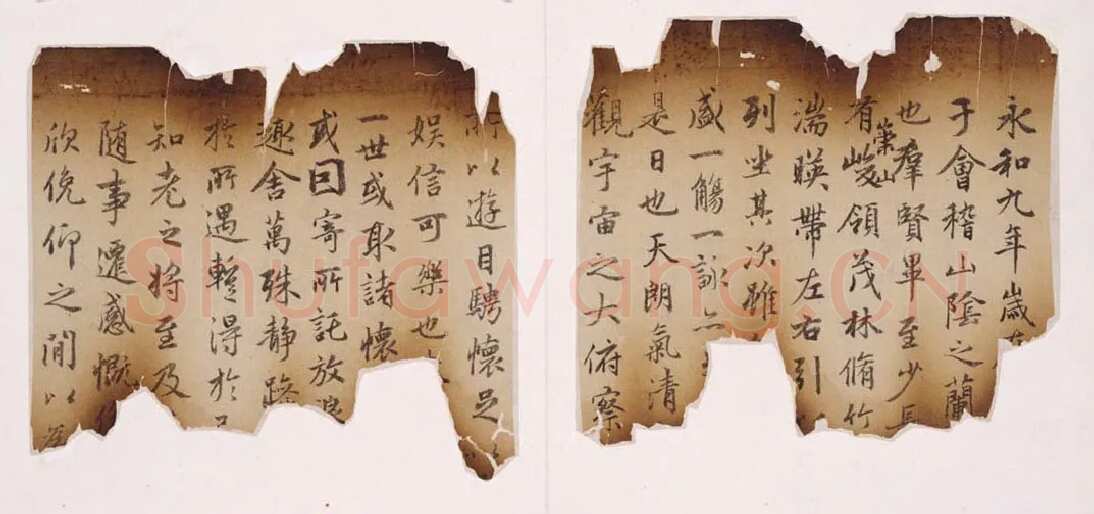 永和九年歲在
于會稽山陰之蘭
也羣賢畢至少長
有崇山峻領茂林脩竹
湍暎帶左右引以
列坐其次雖
盛一觴一詠亦
是日也天朗氣清
觀宇宙之大俯察
所以遊目騁懷足以
娛信可樂也
一世或取諸懷
或因寄所託放浪
趣舍萬殊靜躁
於所遇蹔得於
知老之將至及
隨事遷感慨係
欣俛仰之閒以為
Shufawang.CN